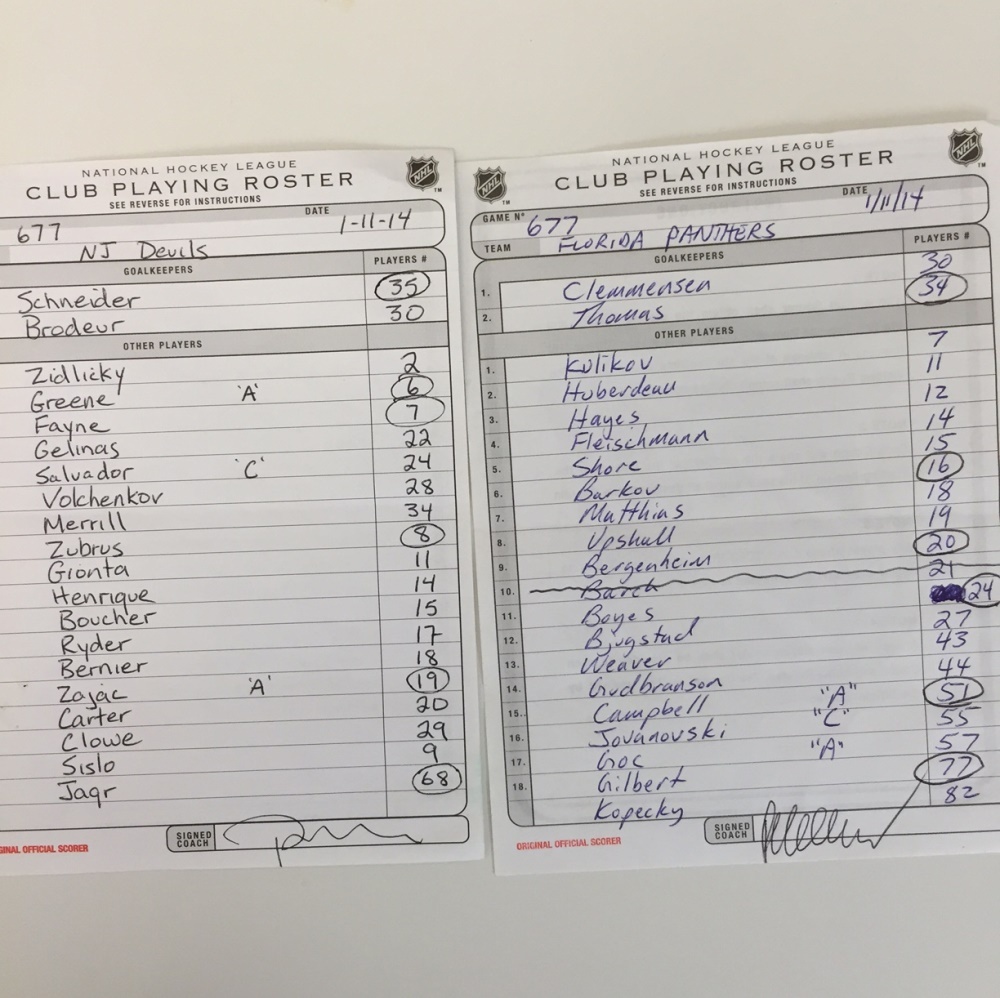 NATIONAL HOCKEY LEAGUE
CLUB PLAYING ROSTER
SEE REVERSE FOR INSTRUCTIONS
NHL
TM
DATE
677 1-11-14
NJ Devils
GOALKEEPERS PLAYERS #
Schneider 35
Brodeur 30
OTHER PLAYERS
Zidlicky 2
Greene 'A' 6
Fayne 7
Gelinas 22
Salvador 'C' 24
Volchenkov 28
Merrill 34
Zubrus 8
Gionta 11
Henrique 14
Boucher 15
Ryder 17
Bernier 18
Zajac 'A' 19
Carter 20
Clowe 29
Sislo 9
Jagr 68
SIGNED
COACH
INAL OFFICIAL SCORER
NHL
TM
NATIONAL HOCKEY LEAGUE
CLUB PLAYING ROSTER
SEE REVERSE FOR INSTRUCTIONS
NHL
TM
GAME Nº 677 DATE 1/11/14
TEAM FLORIDA PANTHERS
GOALKEEPERS PLAYERS #
1. Clemmensen 30
2. Thomas 34
OTHER PLAYERS
1. Kulikov 7
2. Huberdeau 11
3. Hayes 12
4. Fleischmann 14
5. Shore 15
6. Barkov 16
7. Matthias 18
8. Upshall 19
9. Bergenheim 20
10. Barch 21
11. Boyes 24
12. Bjugstad 27
13. Weaver 43
14. Gudbranson 44
15. Campbell "A" 51
16. Jovanovski "C" 55
17. Goc "A" 57
18. Gilbert 77
Kopecky 82
SIGNED
COACH
ORIGINAL OFFICIAL SCORER